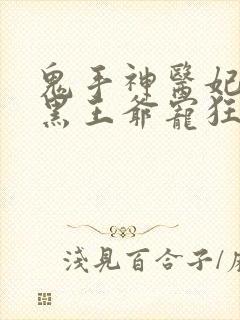 鬼手神醫妃
黑王爺寵狂
淺見百合子/